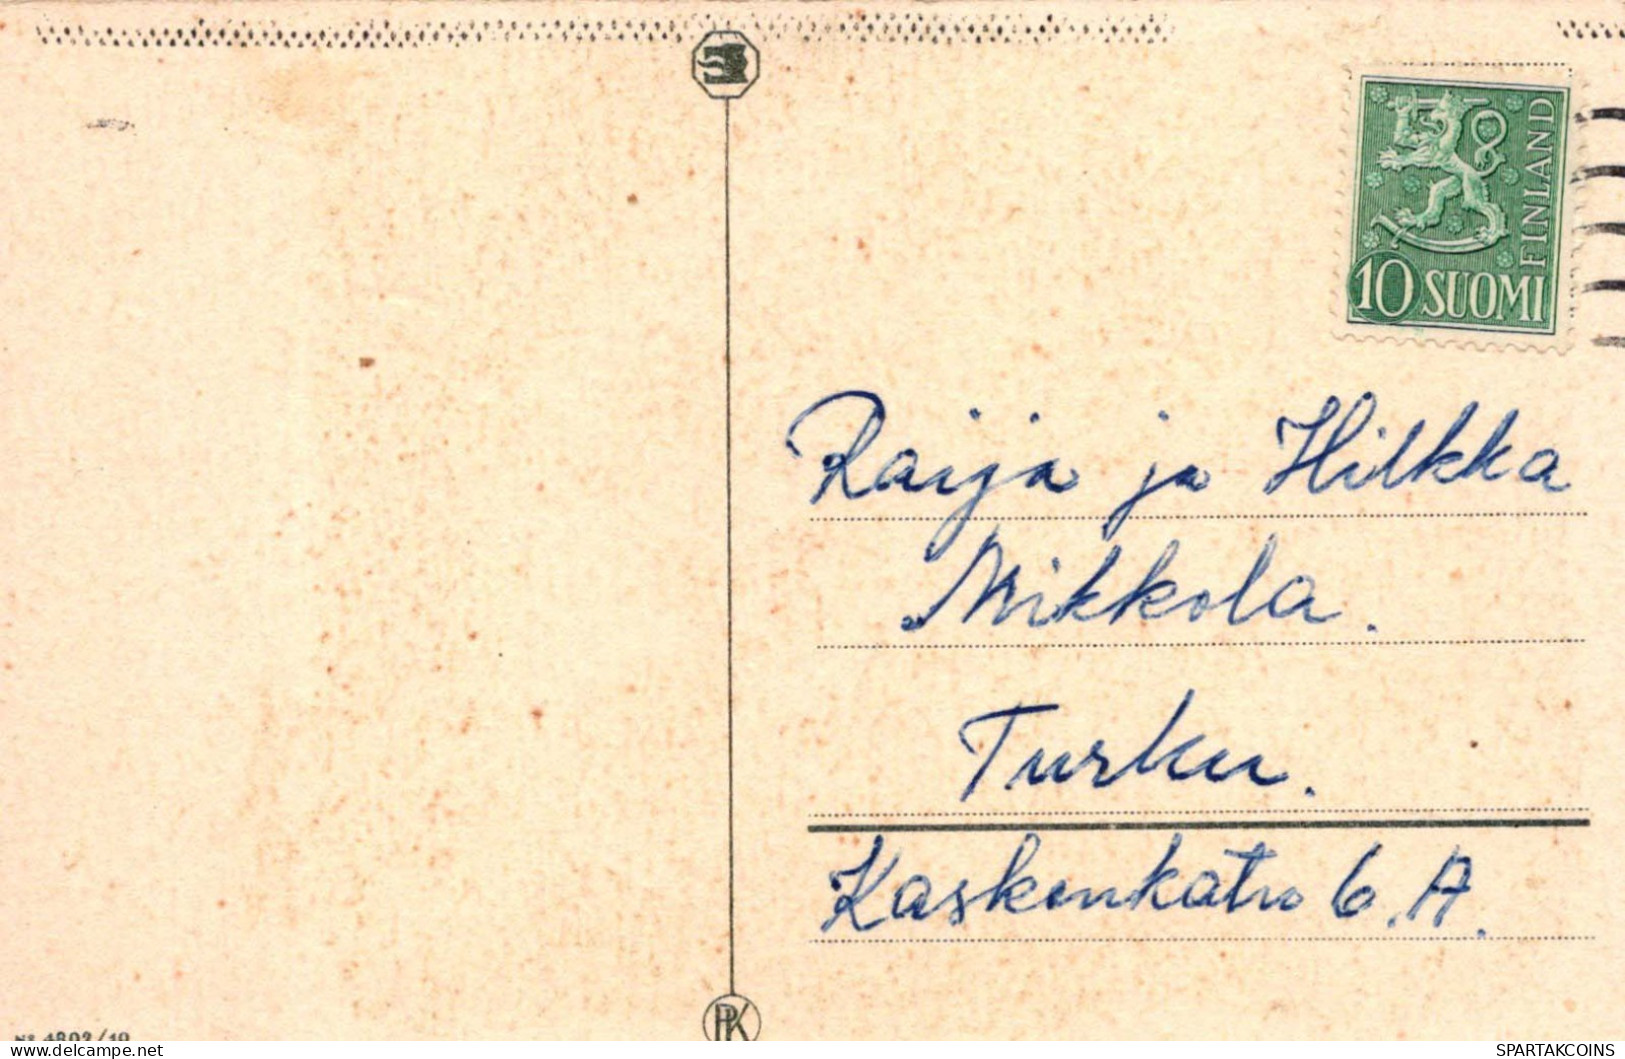 10 SUOMI
FINLAND
Raija ja Hilkka
Mikkola.
Turku.
Kaskenkatu 6. A.
PK
N: 4802/10
delcampe.net
SPARTAKCOINS